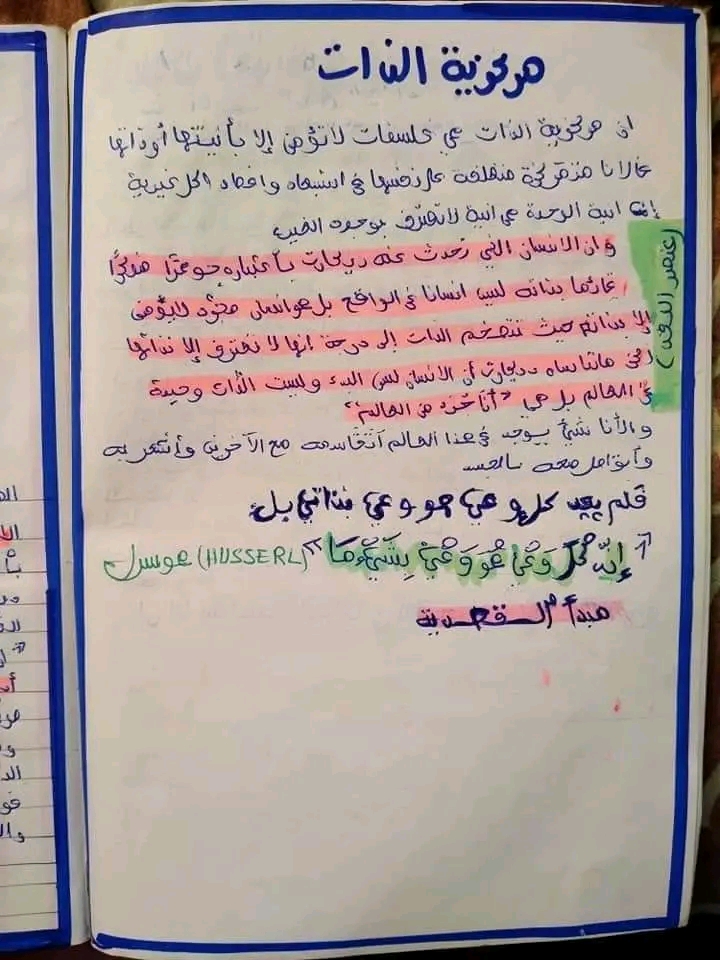 مركزية الذات
ان مركزية الذات هي فلسفات لا تؤمن إلا بأنيتها أو ذاتها
فالانا متمركزة منغلقة على نفسها في استبعاد واقصاء لكل غيرية
إنها انية الوحدة هي انية لا تعترف بوجود الغير
وان الانسان الذي تحدث عنه ديكارت باعتباره جوهرا مفكرًا
قائما بذاته ليس انسانا في الواقع بل هو انسان مجرّد لا يؤمن
إلا بذاته حيث تتضخم الذات إلى درجة انها لا تعترف إلا بذاتها
ديكارت أن الانسان ليس البدء وليست الذات وحيدة
في العالم بل هي "أنا جزء من العالم"
والأنا شيئ يوجد في هذا العالم أتقاسمه مع الآخرين وأشعر به
وأتواصل معه بالجسد
فلم يعد كل وعي هو وعي بذاتي بل
"إنّ كُلَّ وَعْيٍ هُوَ وَعْيٌ بِشَيْءٍ مَا" (HUSSERL) هوسرل
مبدأ القصدية
(عنصر النقد)